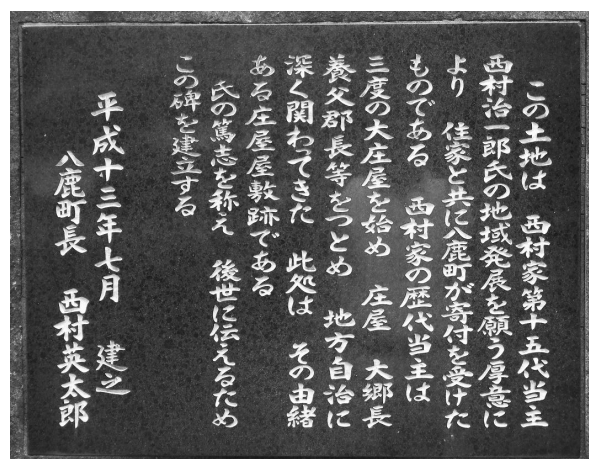 この土地は　西村家第十五代当主
西村治一郎氏の地域発展を願う厚意に
より　住家と共に八鹿町が寄付を受けた
ものである　西村家の歴代当主は
三度の大庄屋を始め　庄屋　大郷長
養父郡長等をつとめ　地方自治に
深く関わってきた　此処は　その由緒
ある庄屋屋敷跡である
氏の篤志を称え　後世に伝えるため
この碑を建立する
平成十三年七月　建之
八鹿町長　西村英太郎